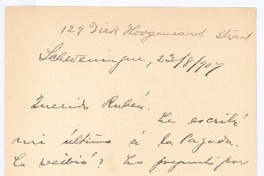 129 Dirk Hoogenraad Straat
Scheveningue, 23/8/907
Querido Rubén.
Le escribí
mi última á la Pagada.
La recibió? Lo pregunto por